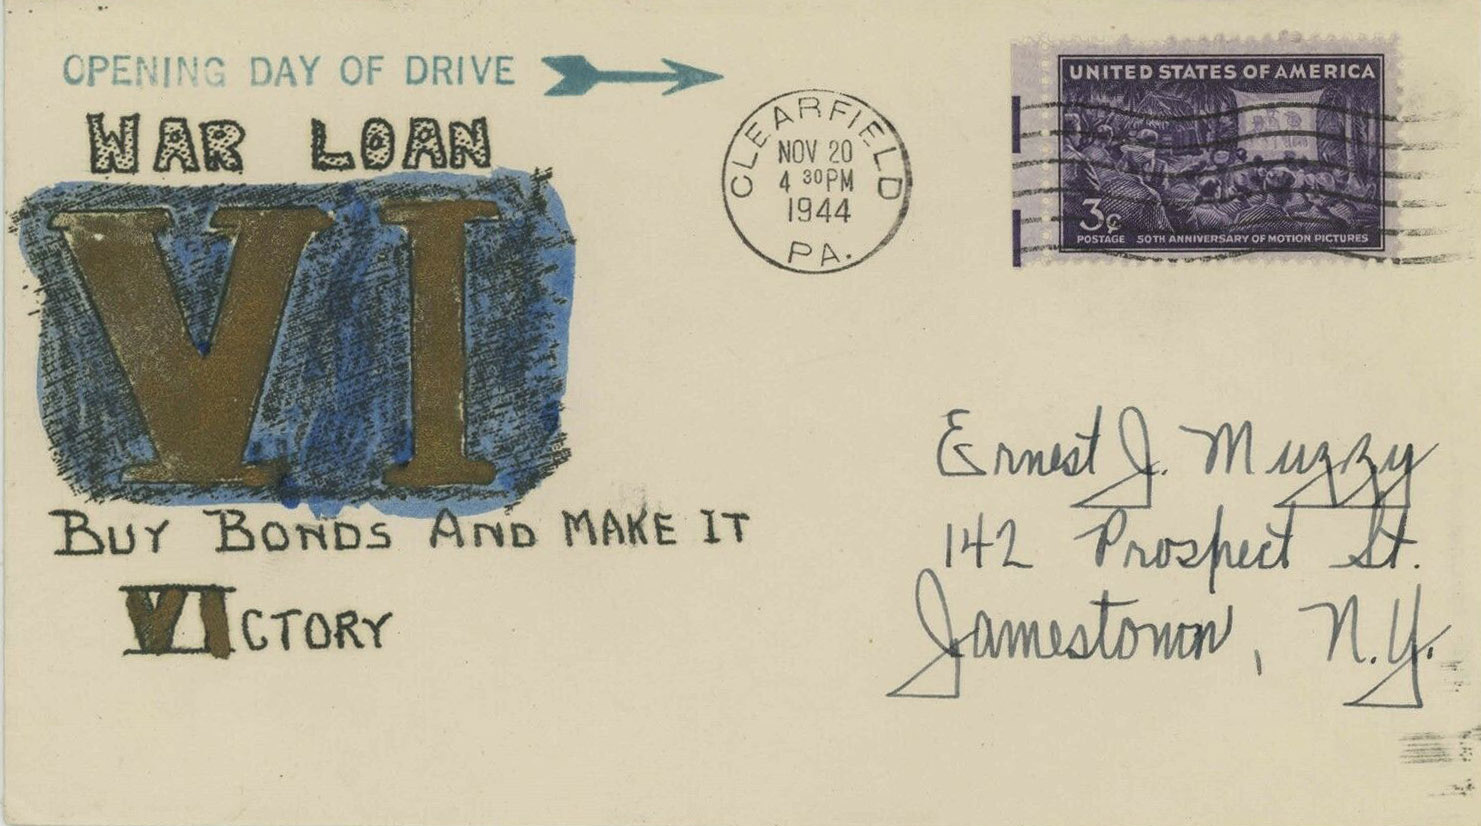 OPENING DAY OF DRIVE
WAR LOAN
VI
BUY BONDS AND MAKE IT
VICTORY
CLEARFIELD
NOV 20
4 30 PM
1944
PA.
UNITED STATES OF AMERICA
3¢
POSTAGE 50TH ANNIVERSARY OF MOTION PICTURES
Ernest J. Muzzy
142 Prospect St.
Jamestown, N.Y.